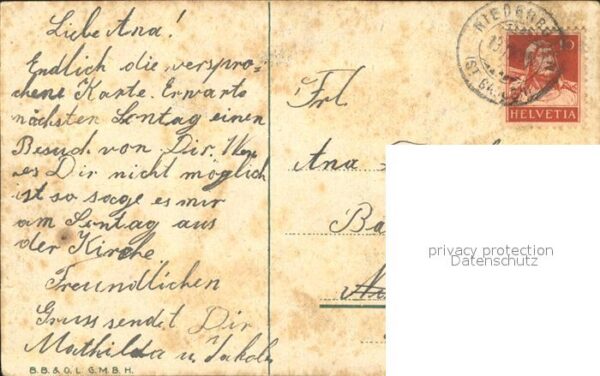 Liebe Ana!
Endlich die verspro-
chene Karte. Erwarte
nächsten Sontag einen
Besuch von Dir. Wen
es Dir nicht möglich
ist so sage es mir
am Sontag aus
der Kirche
Freundlichen
Gruss sendet Dir
Mathilda u. Jakob
B.B.& O.L. G.M.B.H.
Frl
Ana
Ba
10
HELVETIA
privacy protection
Datenschutz